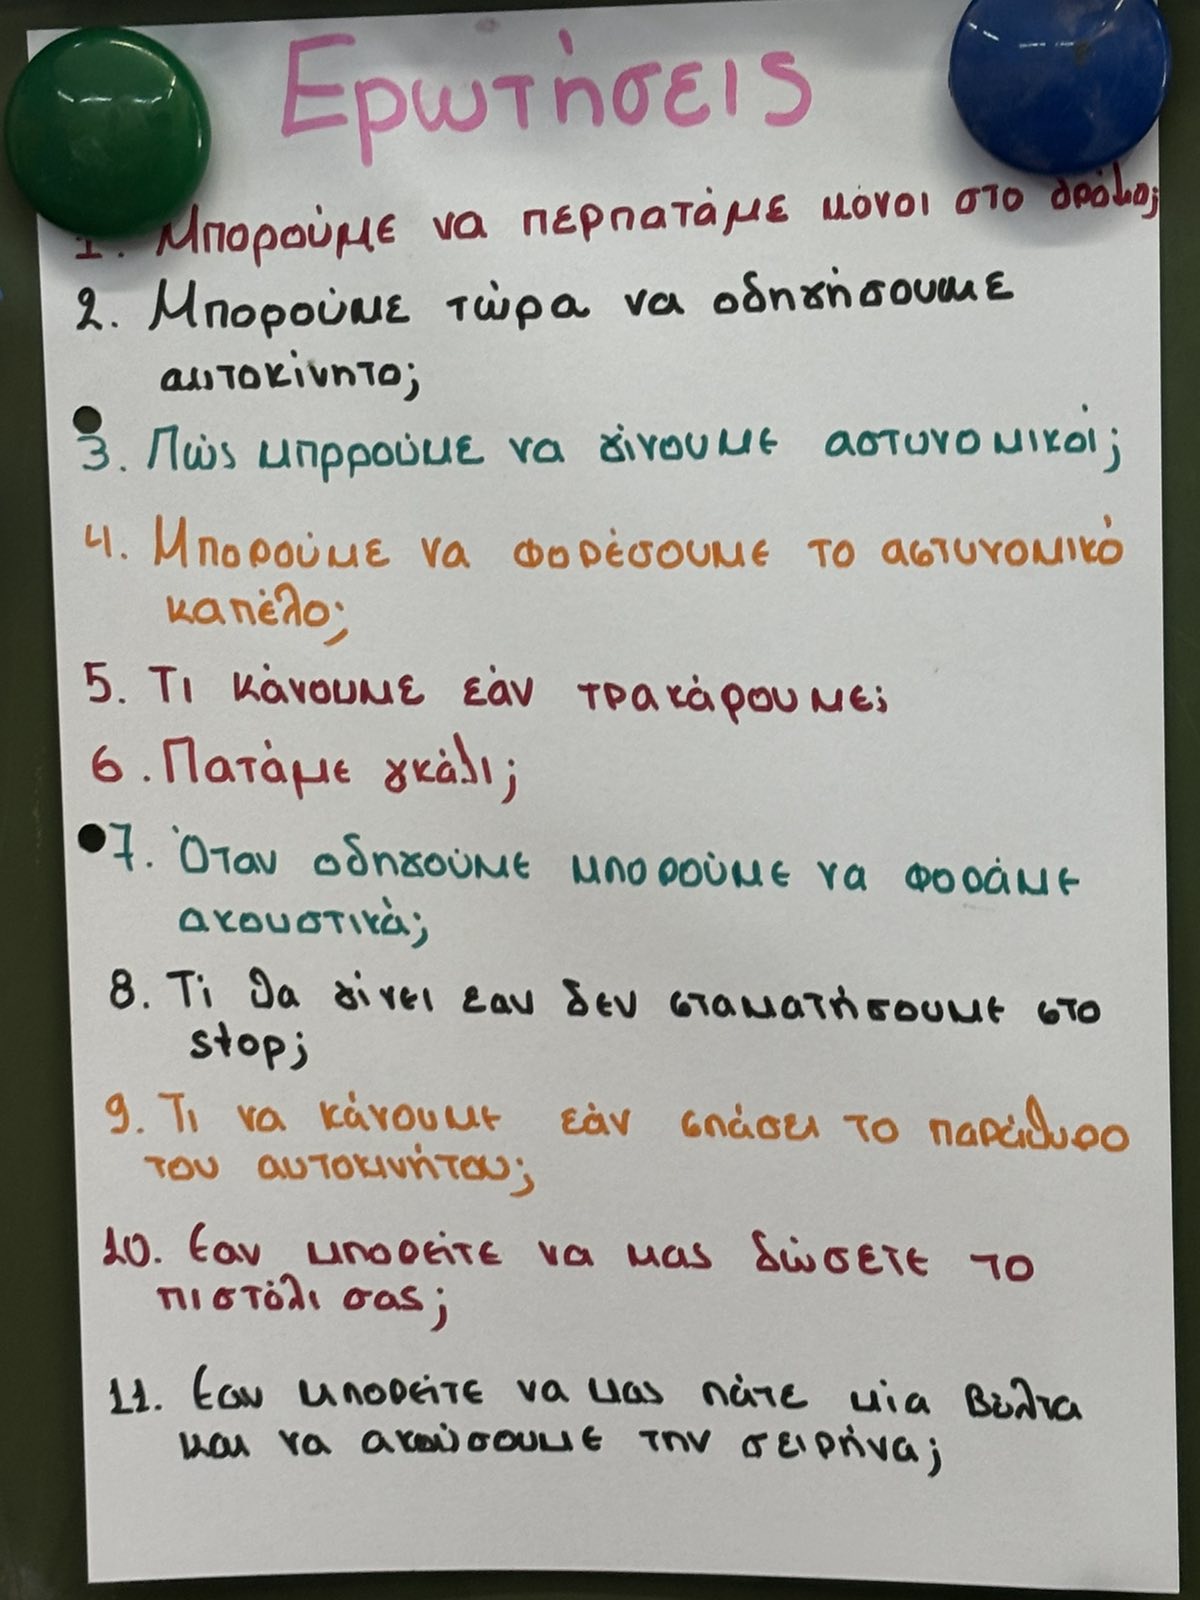 Ερωτήσεις
1. Μπορούμε να περπατάμε μόνοι στο δρόμο;
2. Μπορούμε τώρα να οδηγήσουμε
αυτοκίνητο;
3. Πώς μπρρούμε να γίνουμε αστυνομικοί;
4. Μπορούμε να φορέσουμε το αστυνομικό
καπέλο;
5. Τι κάνουμε εάν τρακάρουμε;
6. Πατάμε γκάζι;
7. Όταν οδηγούμε μπορούμε να φοράμε
ακουστικά;
8. Τί θα γίνει εαν δεν σταματήσουμε στο
stop;
9. Τι να κάνουμε εάν σπάσει το παράθυρο
του αυτοκινήτου;
10. Εαν μπορείτε να μας δώσετε το
πιστόλι σας;
11. Εαν μπορείτε να μας πάτε μία βόλτα
και να ακούσουμε την σειρήνα;